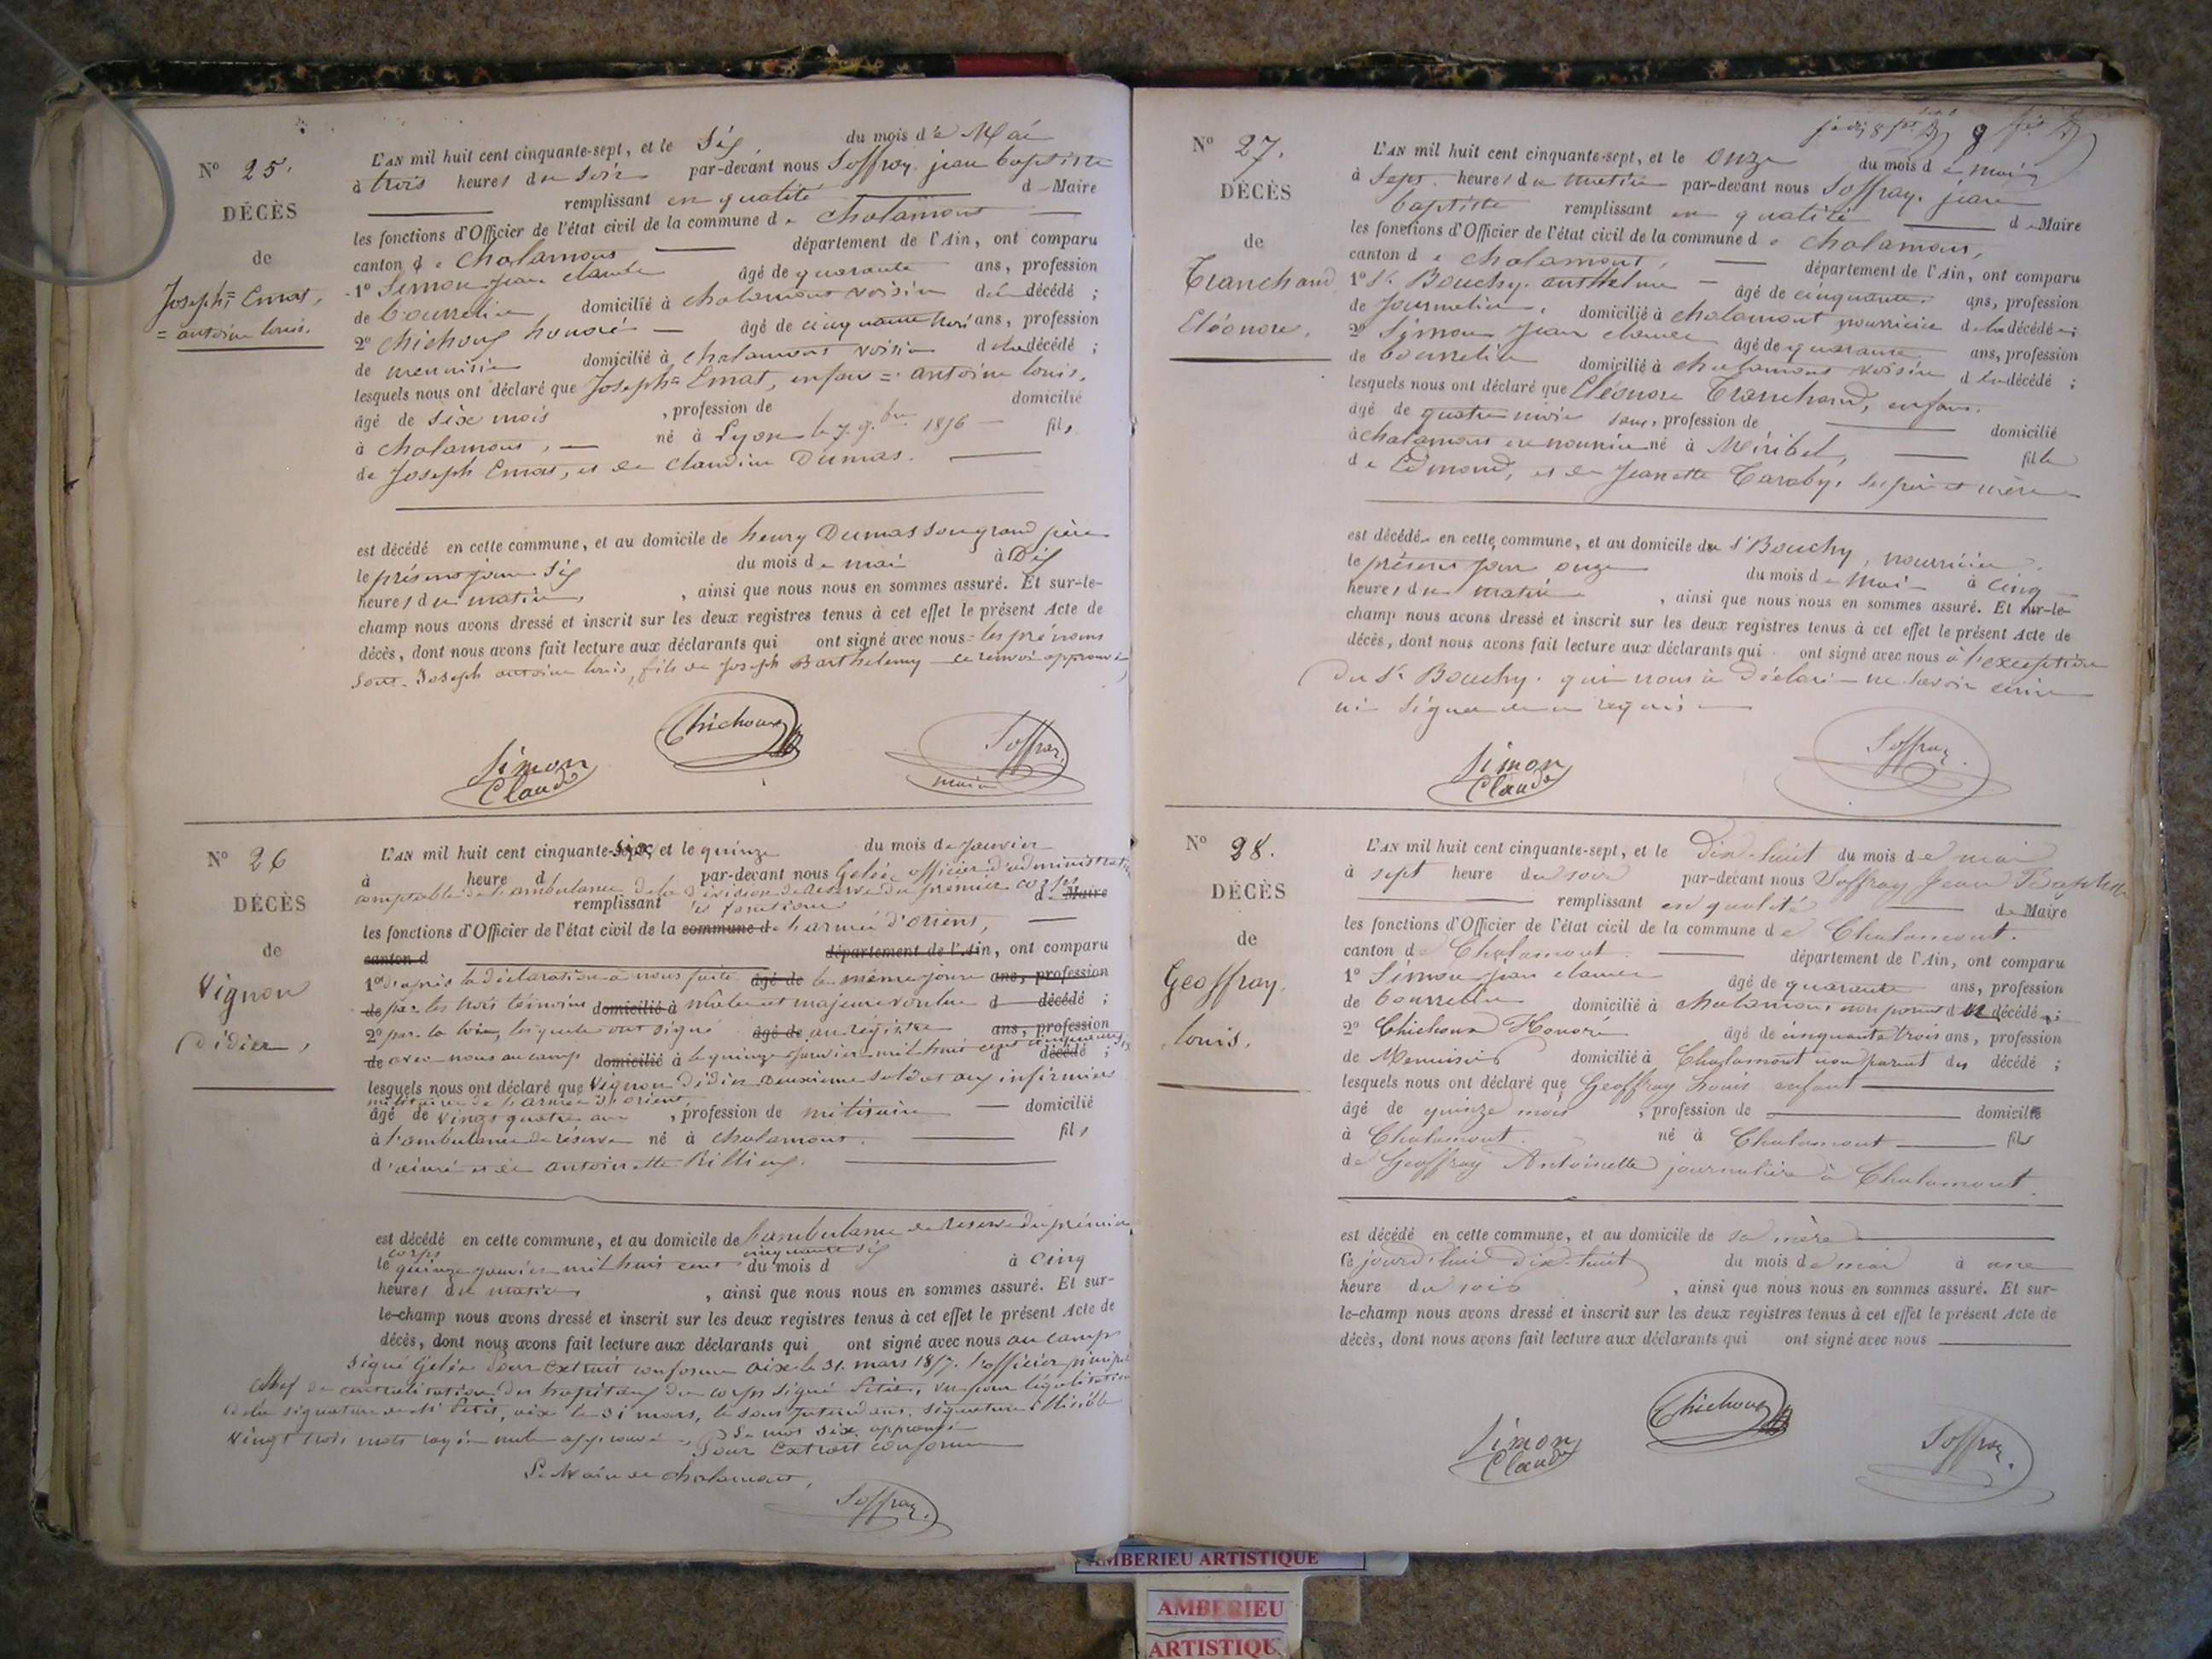 N° 25.
DÉCÈS
de
Joseph= Emat,
= antoine louis.
L'AN mil huit cent cinquante-sept, et le Six du mois de Mai
à trois heures du soir par-devant nous Soffray jean baptiste
remplissant en qualité de Maire
les fonctions d'Officier de l'état civil de la commune de Chalamont
canton de Chalamont département de l'Ain, ont comparu
1° Simon jean claude âgé de quarante ans, profession
de bourrelier domicilié à chalamont voisin de la décédé ;
2° Chichoux honoré âgé de cinquante trois ans, profession
de menuisier domicilié à chalamont voisin de la décédé ;
lesquels nous ont déclaré que Joseph= Emat, enfant =. antoine louis.
âgé de six mois , profession de domicilié
à chalamont, né à Lyon le 7. 9.bre 1856 fils
de Joseph Emat, et de claudine Dumas.
est décédé en cette commune, et au domicile de henry Dumas son grand père
le présent jour Six du mois de mai à Dix
heures du matin, , ainsi que nous nous en sommes assuré. Et sur-le-
champ nous avons dressé et inscrit sur les deux registres tenus à cet effet le présent Acte de
décès, dont nous avons fait lecture aux déclarants qui ont signé avec nous = les prénoms
sont. Joseph antoine louis, fils de Joseph Barthelemy le renvoi approuvé
Chichoux
Simon
Claude
Soffray
maire
N° 26
DÉCÈS
de
Vignon
Didier,
L'AN mil huit cent cinquante-six, et le quinze du mois de Janvier
à heure d par-devant nous Gelée officier d'administration
comptable de l'ambulance de la division de réserve du premier corps
remplissant les fonctions de Maire
les fonctions d'Officier de l'état civil de la commune de l'armée d'orient,
canton d département de l'Ain, ont comparu
1° d'après la déclaration à nous faite âgé de le même jour ans, profession
de par les trois témoins domicilié à mâles et majeurs voulus d décédé ;
2° par la loi, lesquels ont signé âgé de au régistre ans, profession
de avec nous au camp domicilié à le quinze janvier mil huit cent cinquante six d décédé ;
lesquels nous ont déclaré que Vignon Didier deuxième soldat aux infirmiers
militaires de l'armée d'orient
âgé de vingt quatre ans , profession de militaire domicilié
à l'ambulance de réserve né à chalamont. fils
d'aimé et de antoinette Rillieux.
est décédé en cette commune, et au domicile de l'ambulance de reserve du premier
corps cinquante six
le quinze janvier mil huit cent du mois d à cinq
heures du matin , ainsi que nous nous en sommes assuré. Et sur-
le-champ nous avons dressé et inscrit sur les deux registres tenus à cet effet le présent Acte de
décès, dont nous avons fait lecture aux déclarants qui ont signé avec nous au camp
signé Gelée Pour extrait conforme aix le 31. mars 1857. l'officier principal
chef de centralisation des hopitaux du corps signé Petit, vu pour légalisation
de la signature de M. Petit, aix le 31 mars, le sous Intendant. signature illisible
vingt trois mots rayés nuls approuvés, Le mot six approuvé
Pour Extrait conforme
Le Maire de chalamont,
Soffray
N° 27.
DÉCÈS
de
Tranchand
Eléonore.
L'AN mil huit cent cinquante-sept, et le onze du mois de mai
à sept heures du matin par-devant nous Soffray. jean
baptiste remplissant en qualité de Maire
les fonctions d'Officier de l'état civil de la commune de chalamont,
canton de chalamont, département de l'Ain, ont comparu
1° Sr Bouchy. anthelme âgé de cinquante ans, profession
de Journalier, domicilié à chalamont nourricier de la décédée ;
2° Simon Jean claude âgé de quarante ans, profession
de bourrelier domicilié à chalamont voisin de la décédé ;
lesquels nous ont déclaré que Eléonore Tranchand, enfant.
âgé de quatre mois sans, profession de domicilié
à chalamont en nourrice né à Méribel, fille
de Edmond, et de Jeanette Caraby, ses père et mère
est décédée en cette commune, et au domicile du Sr Bouchy, nourricier.
le présent jour onze du mois de Mai à cinq
heures du matin , ainsi que nous nous en sommes assuré. Et sur-le-
champ nous avons dressé et inscrit sur les deux registres tenus à cet effet le présent Acte de
décès, dont nous avons fait lecture aux déclarants qui ont signé avec nous à l'exception
du Sr Bouchy. qui nous à Déclaré ne savoir écrire
ni signer de ce requis
Simon
Claude
Soffray
N° 28.
DÉCÈS
de
Geoffray.
louis.
L'AN mil huit cent cinquante-sept, et le Dix-huit du mois de mai
à sept heure du soir par-devant nous Soffray Jean Baptiste
remplissant en qualité de Maire
les fonctions d'Officier de l'état civil de la commune de Chalamont.
canton de Chalamont. département de l'Ain, ont comparu
1° Simon jean claude âgé de quarante ans, profession
de bourrelier domicilié à chalamont non parent du décédé ;
2° Chichoux Honoré âgé de cinquante trois ans, profession
de Menuisier domicilié à Chalamont non parent du décédé ;
lesquels nous ont déclaré que Geoffray Louis enfant
âgé de quinze mois , profession de domicilié
à Chalamont. né à Chalamont fils
de Geoffray Antoinette journalière à Chalamont.
est décédé en cette commune, et au domicile de sa mère
Ce jourd'hui dix-huit du mois de mai à une
heure du soir , ainsi que nous nous en sommes assuré. Et sur-
le-champ nous avons dressé et inscrit sur les deux registres tenus à cet effet le présent Acte de
décès, dont nous avons fait lecture aux déclarants qui ont signé avec nous
Chichoux
Simon
Claude
Soffray
AMBERIEU ARTISTIQUE
AMBERIEU
ARTISTIQUE